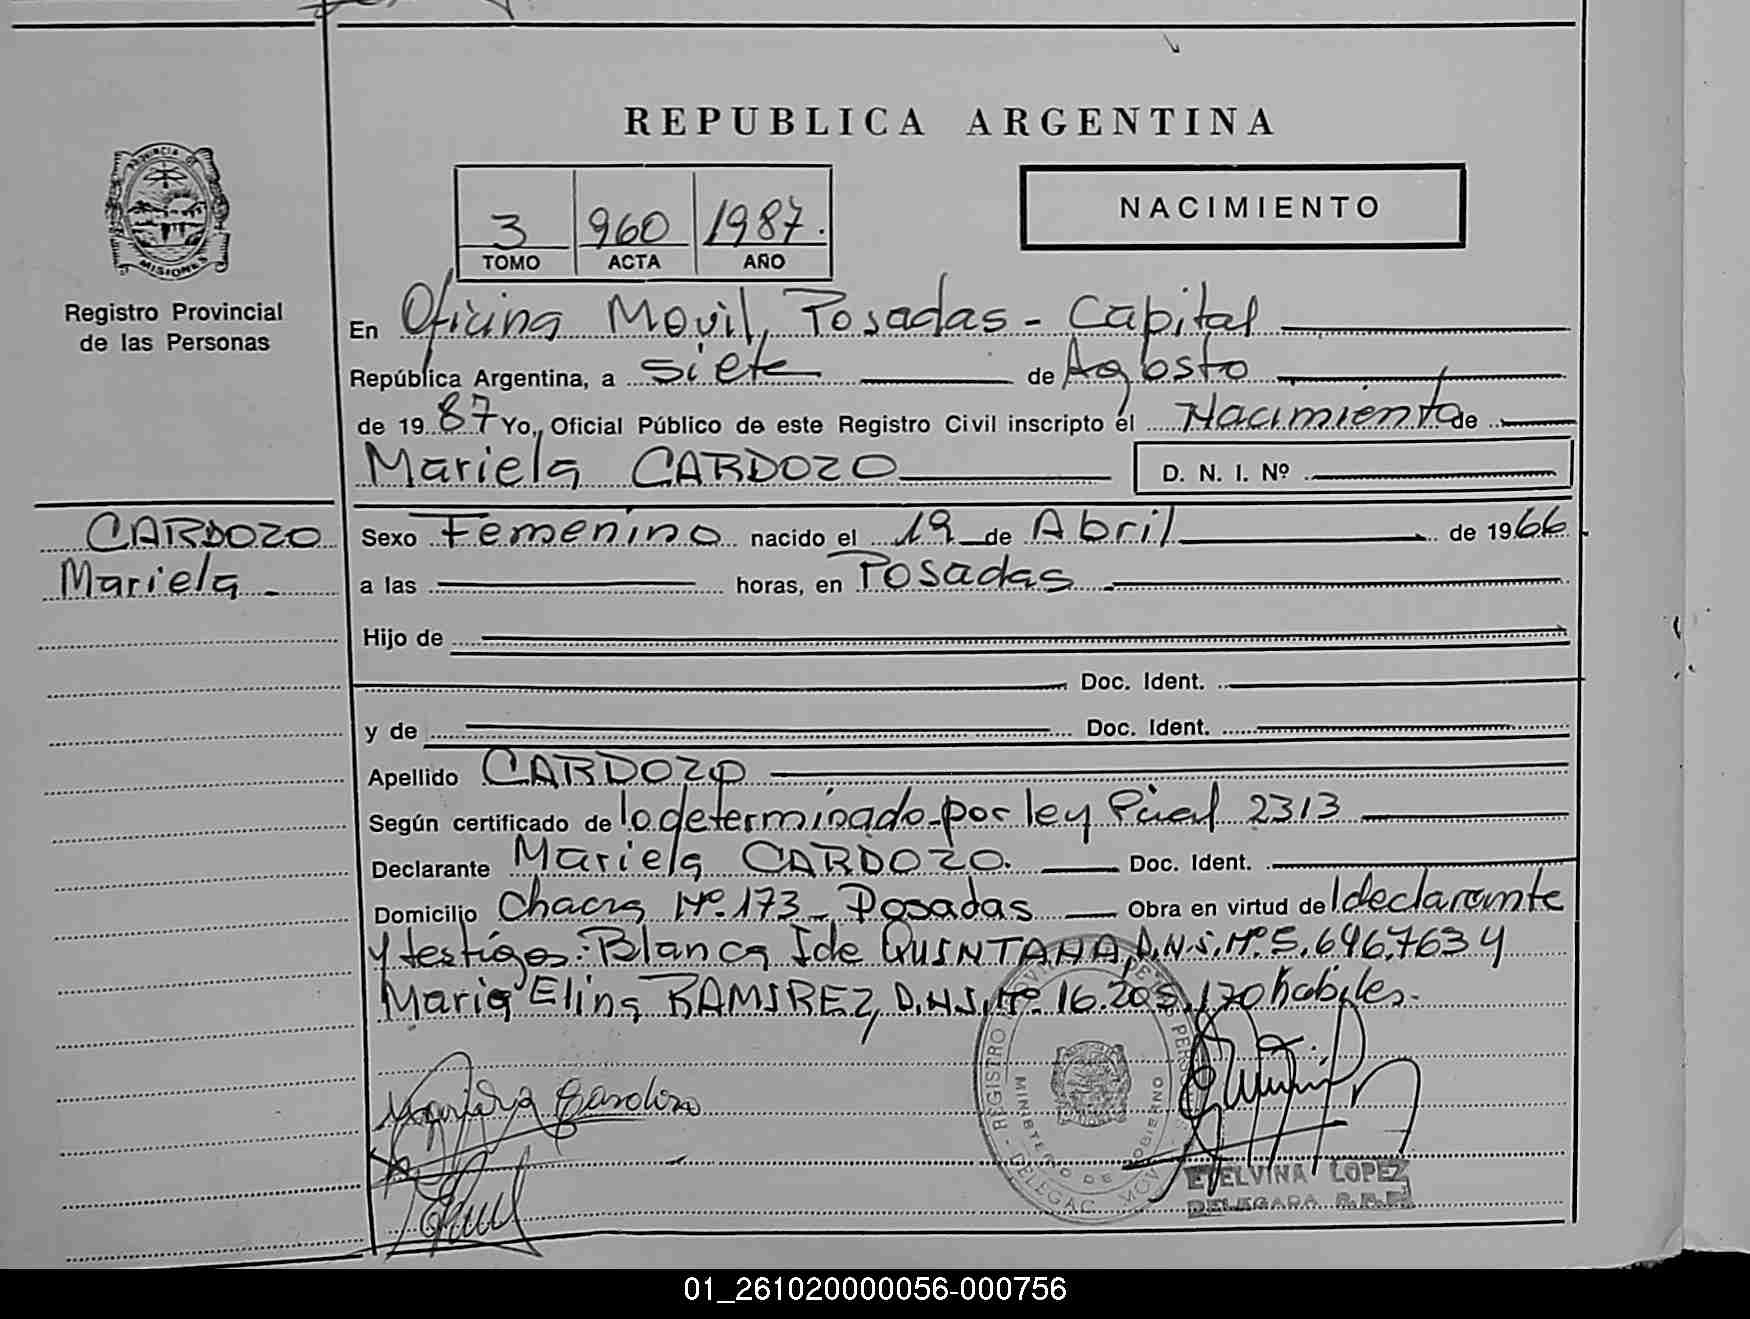 REPUBLICA ARGENTINA
PROVINCIA DE
MISIONES
Registro Provincial
de las Personas
3 960 1987.
TOMO ACTA AÑO
NACIMIENTO
En Oficina Movil, Posadas - Capital
República Argentina, a siete de Agosto
de 1987 Yo, Oficial Público de este Registro Civil inscripto el Nacimiento de
Mariela CARDOZO D. N. I. Nº
CARDOZO
Mariela
Sexo Femenino nacido el 19 de Abril de 1966
a las horas, en Posadas
Hijo de
Doc. Ident.
y de Doc. Ident.
Apellido CARDOZO
Según certificado de lo determinado por ley Pcial 2313
Declarante Mariela CARDOZO. Doc. Ident.
Domicilio Chacra Nº. 173 - Posadas Obra en virtud de declarante
y testigos: Blanca Ide QUINTANA, D.N.I. Nº 5.646.763 y
Maria Elina RAMIREZ, D.N.I. Nº. 16.205.170 habiles.
Cardozo
REGISTRO
MINISTERIO DE GOBIERNO
ETELVINA LOPEZ
DELEGADA R.P.P.
01_261020000056-000756